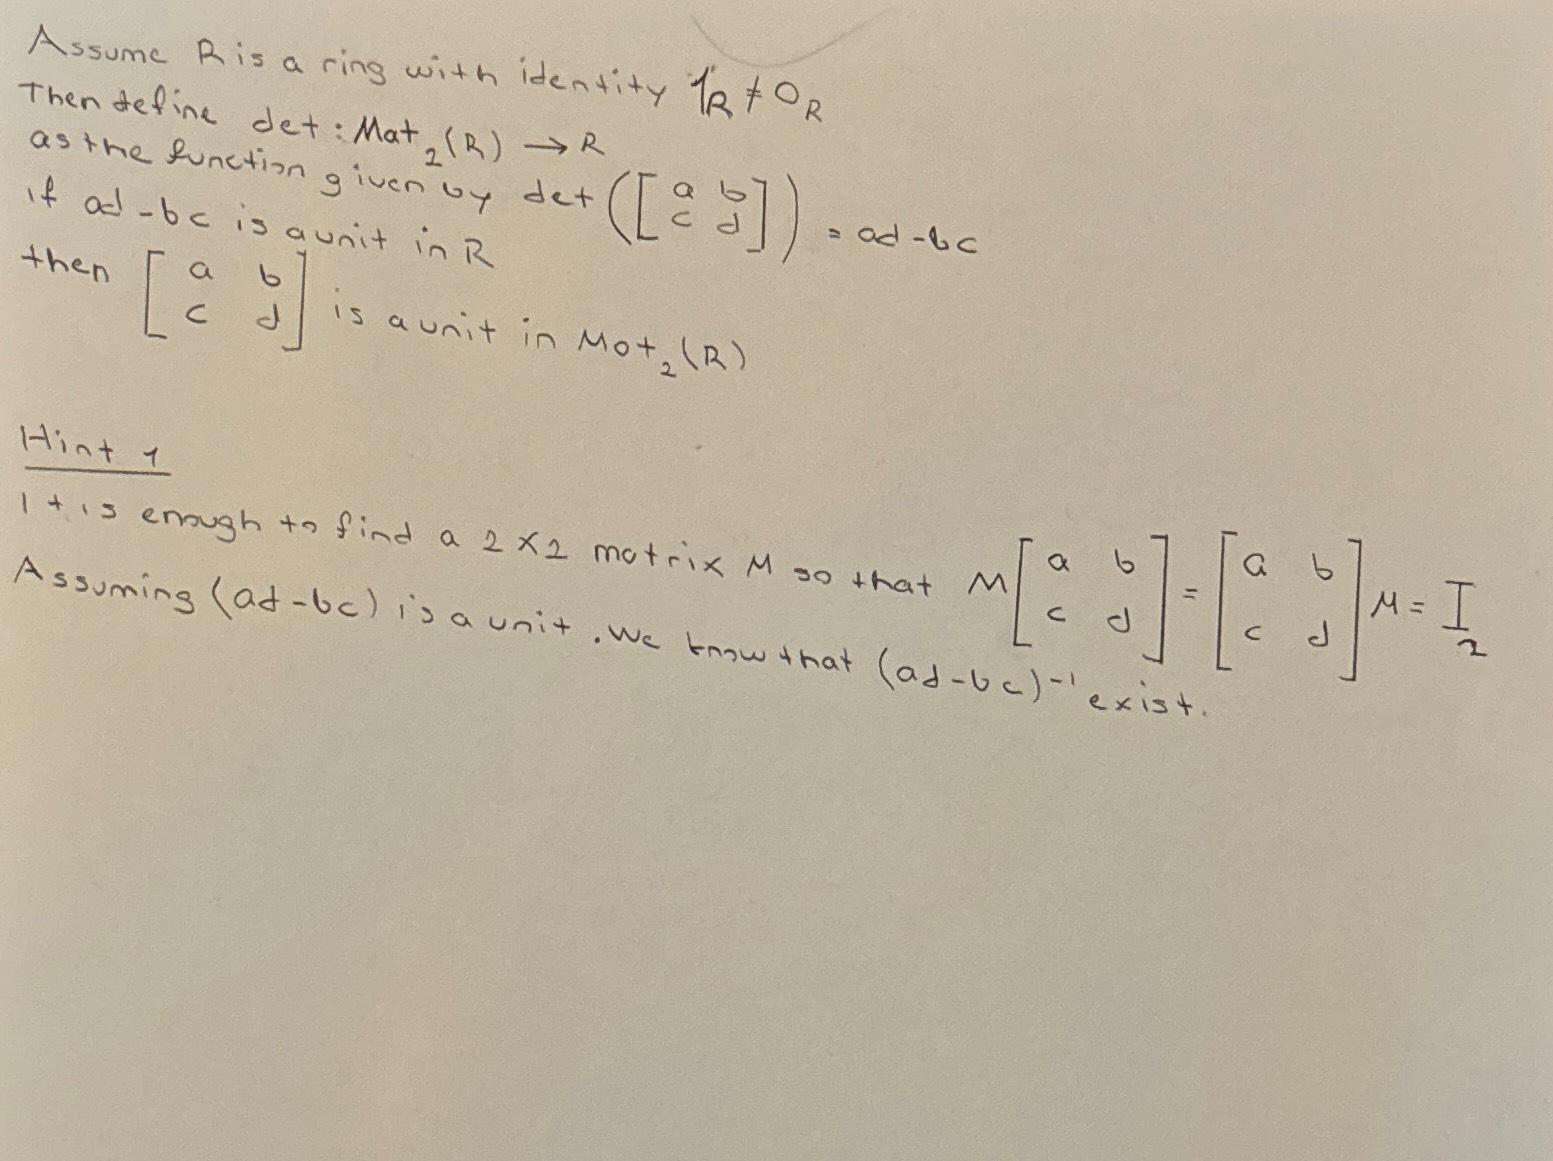 Assume R is a ring with identity 1_R ≠ 0_R
Then define det : Mat_2(R) → R
as the function given by det([a b; c d]) = ad-bc
if ad-bc is a unit in R
then [a b; c d] is a unit in Mat_2(R)
Hint 1
It is enough to find a 2×2 matrix M so that M[a b; c d] = [a b; c d]M = I_2
Assuming (ad-bc) is a unit. We know that (ad-bc)^-1 exist.